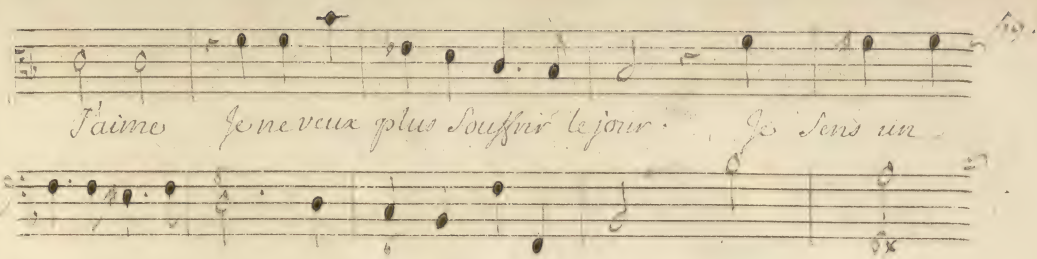 J'aime Je ne veux plus Souffrir le jour. Je Sens un